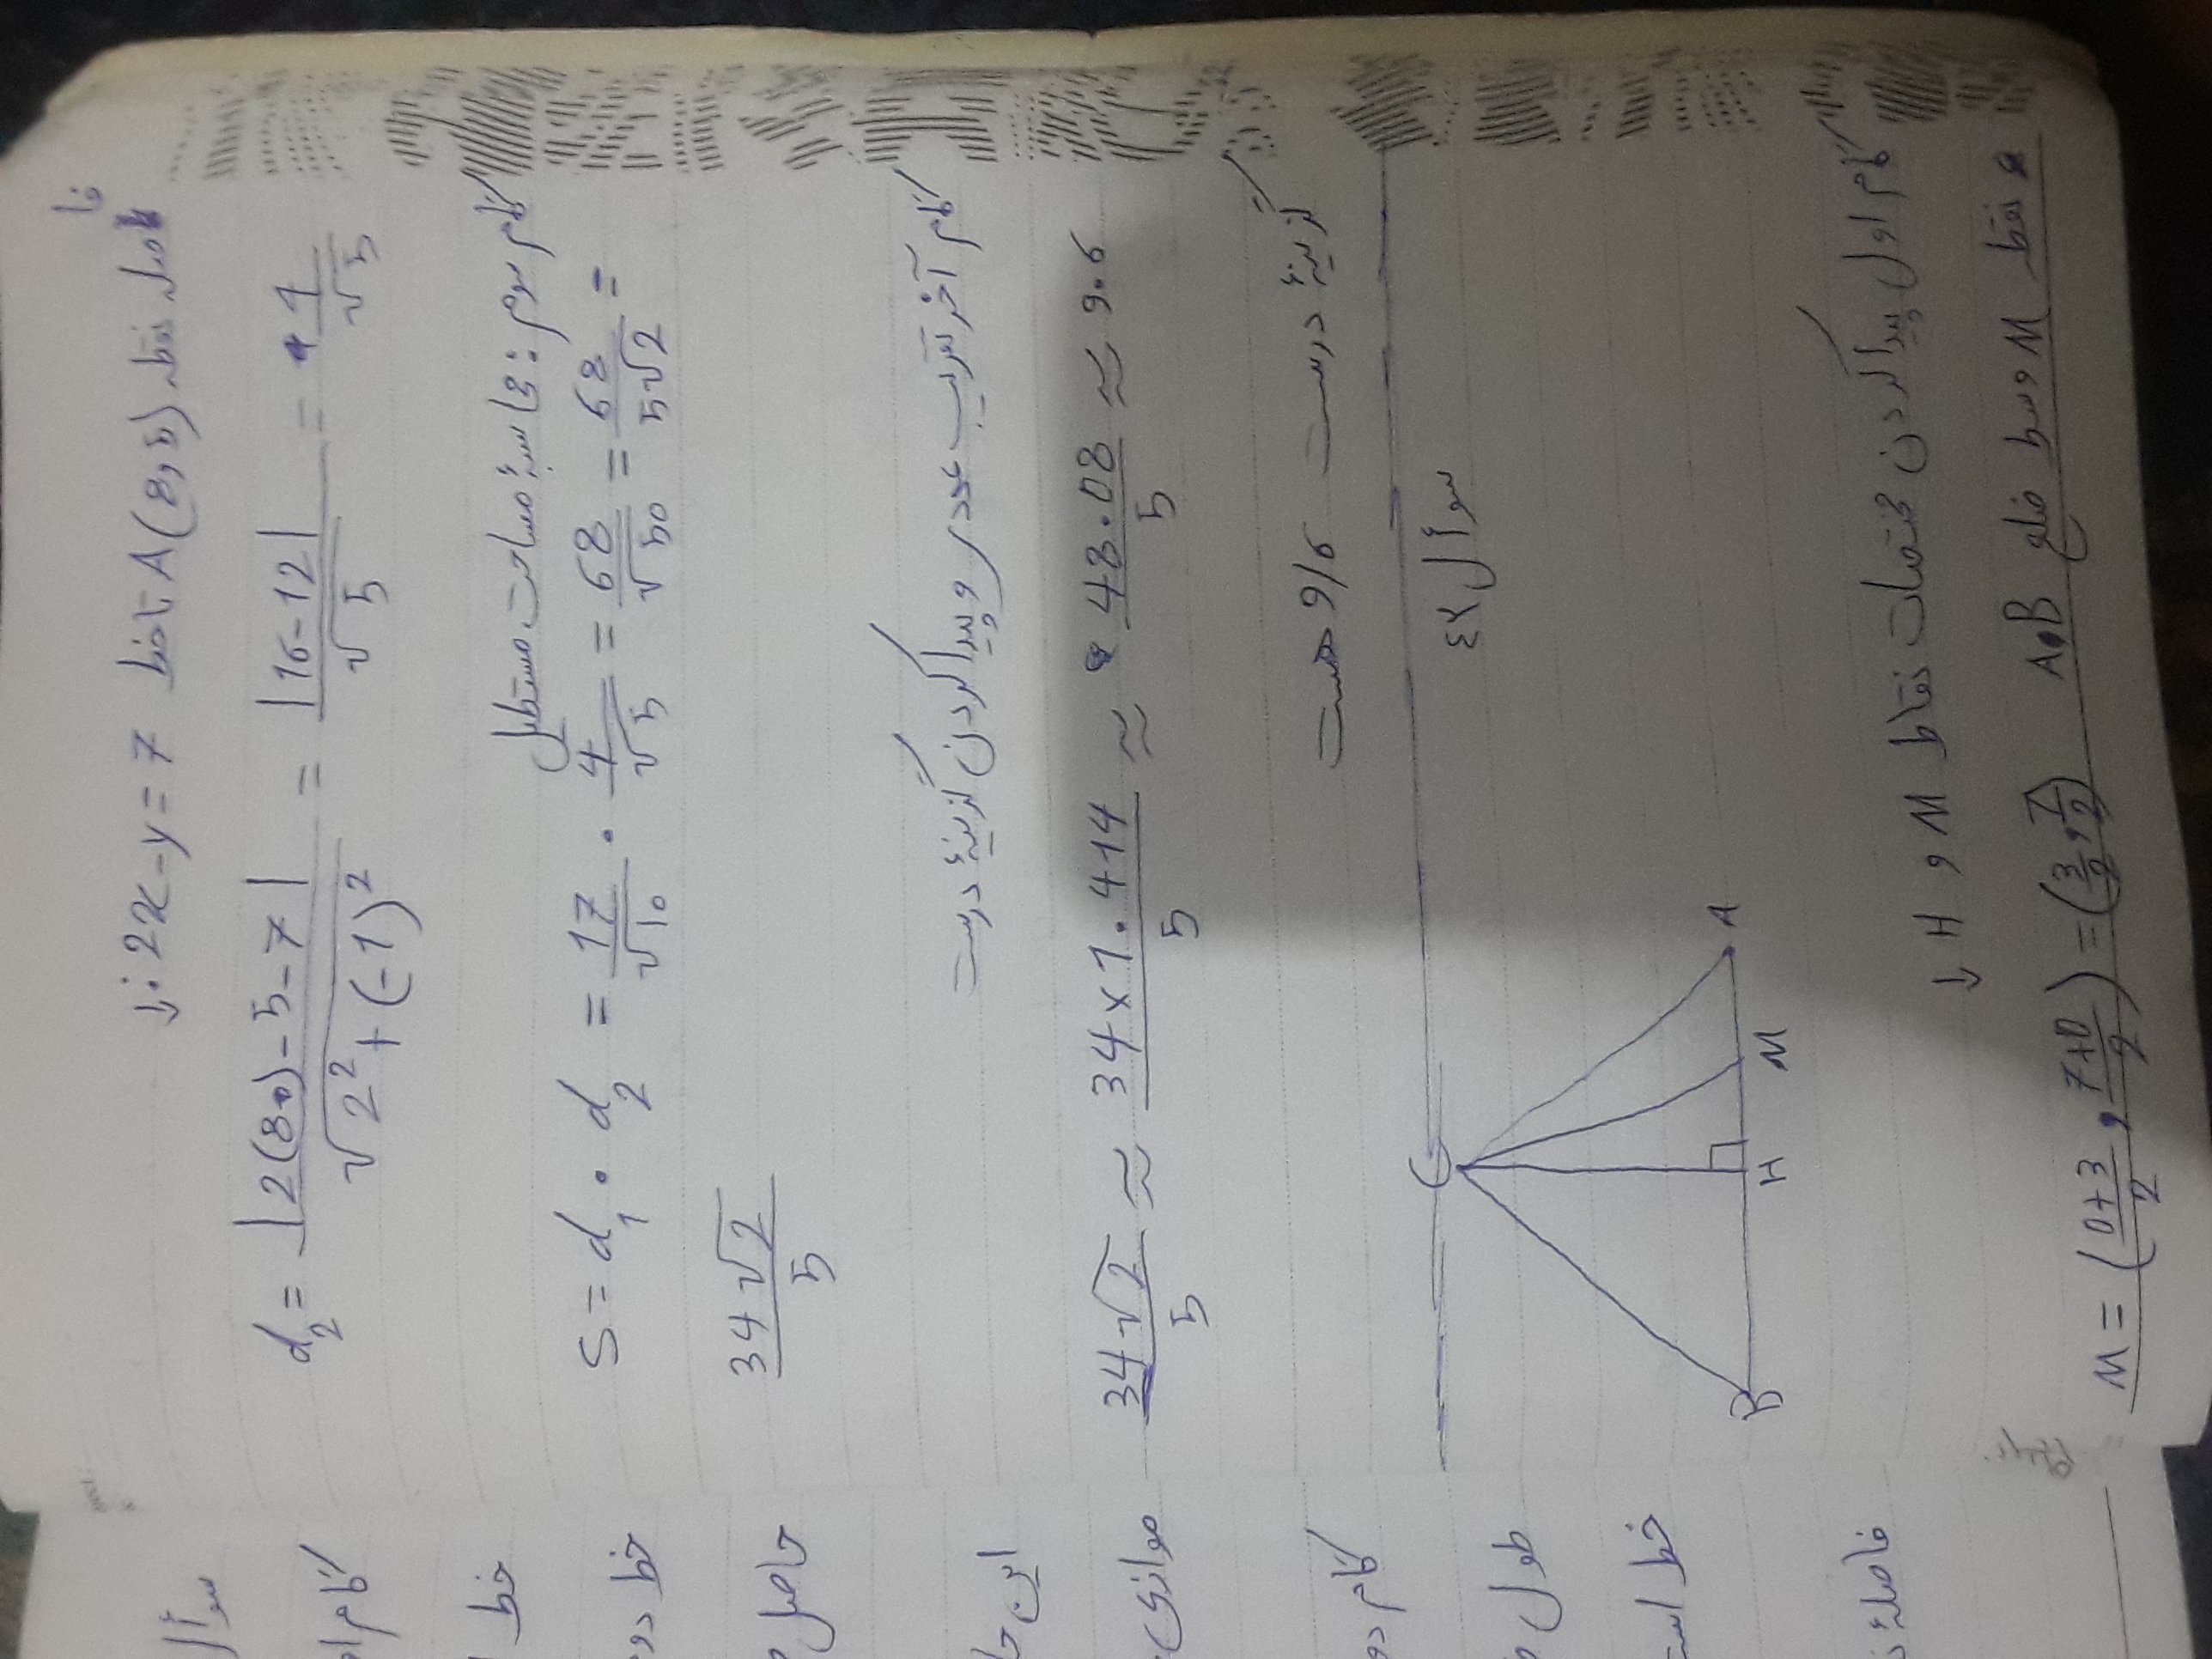 فا
صله نقطه A(8,5) تا خط 2x-y=7 :↓
d₂ = |2(8)-5-7| / √2²+(-1)² = |16-12| / √5 = 4/√5
گام سوم: محاسبهٔ مساحت مستطیل
S = d₁ · d₂ = 17/√10 · 4/√5 = 68/√50 = 68/5√2 =
34√2/5
گام آخر تقریب عددی و پیدا کردن گزینهٔ درست
34√2/5 ≈ 34×1.414/5 ≈ 48.08/5 ≈ 9.6
گزینهٔ درست 9/6 هست
سوأل ٤٣
C
B H M A
گام اول پیدا کردن مختصات نقاط M و H ↓
نقطه M وسط ضلع AB
M = (0+3/2 , 7+0/2) = (3/2 , 7/2)
سوأل
خط
خط دو
حاصل
این
موازی
گام دو
طول
خط است
فاصلهٔ